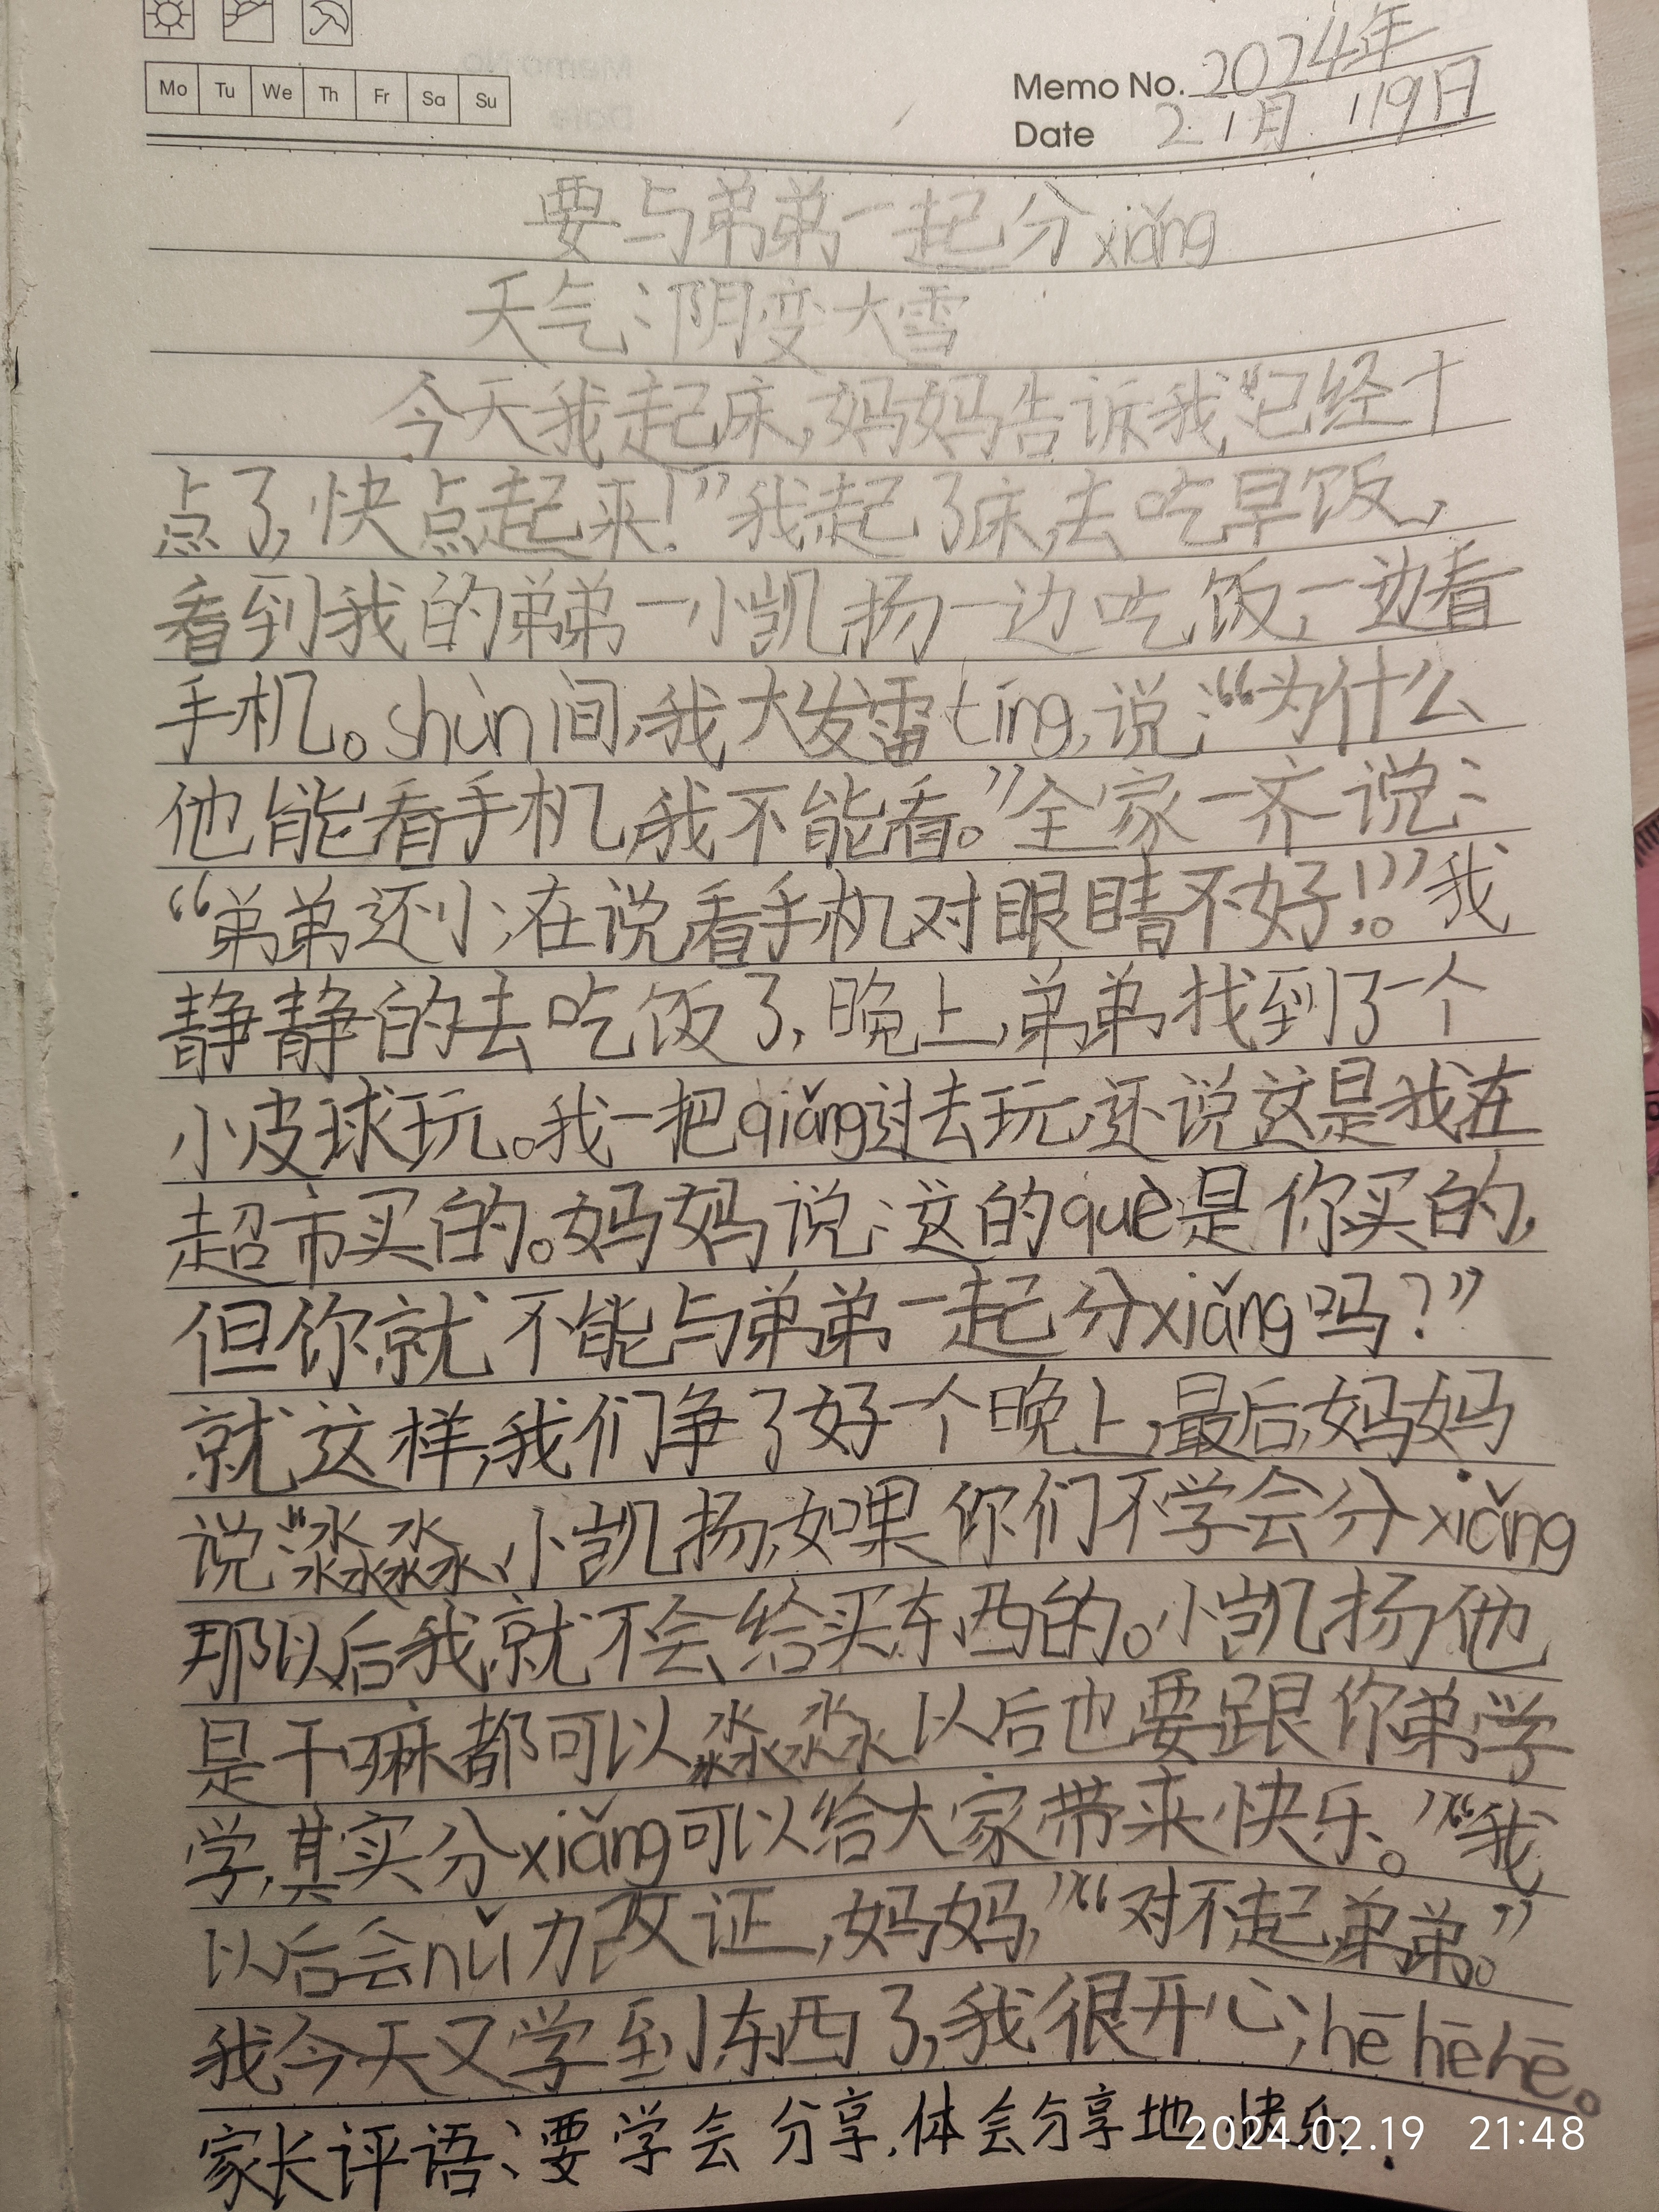 Mo Tu We Th Fr Sa Su
Memo No. 2024年
Date 2月19日
要与弟弟一起分xiǎng
天气:阴变大雪
今天我起床,妈妈告诉我“已经十
点了,快点起来!”我起了床,去吃早饭,
看到我的弟弟一小凯扬一边吃饭,一边看
手机。shùn间,我大发雷tíng,说:“为什么
他能看手机,我不能看。”全家一齐说:
“弟弟还小,在说,看手机对眼睛不好!。”我
静静的去吃饭了,晚上,弟弟找到了一个
小皮球玩。我一把qiǎng过去玩,还说这是我在
超市买的。妈妈说:这的què是你买的,
但你就不能与弟弟一起分xiǎng吗?”
就这样,我们争了好一个晚上,最后,妈妈
说:“淼淼、小凯扬,如果你们不学会分xiǎng
那以后我就不会给买东西的。小凯扬他
是干嘛都可以,淼淼以后也要跟你弟学
学,其实分xiǎng可以给大家带来快乐。”“我
以后会nǔ力改证,妈妈,”“对不起,弟弟。”
我今天又学到东西了,我很开心,hē hē hē。
家长评语:要学会分享,体会分享地快乐.
2024.02.19 21:48